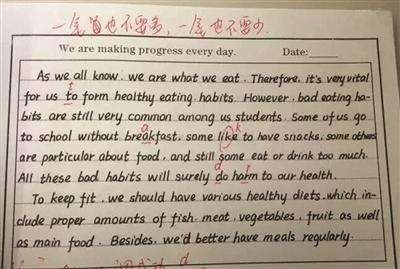 一笔也不要多,一笔也不要少.
We are making progress every day. Date:
As we all know, we are what we eat. Therefore, it's very vital
t
for us to form healthy eating habits. However, bad eating ha-
bits are still very common among us students. Some of us go
a k
to school without breakfast, some like to have snacks, some others
are particular about food, and still some eat or drink too much.
d r
All these bad habits will surely do harm to our health.
To keep fit, we should have various healthy diets, which in-
clude proper amounts of fish, meat, vegetables, fruit as well
as main food. Besides, we'd better have meals regularly.
d